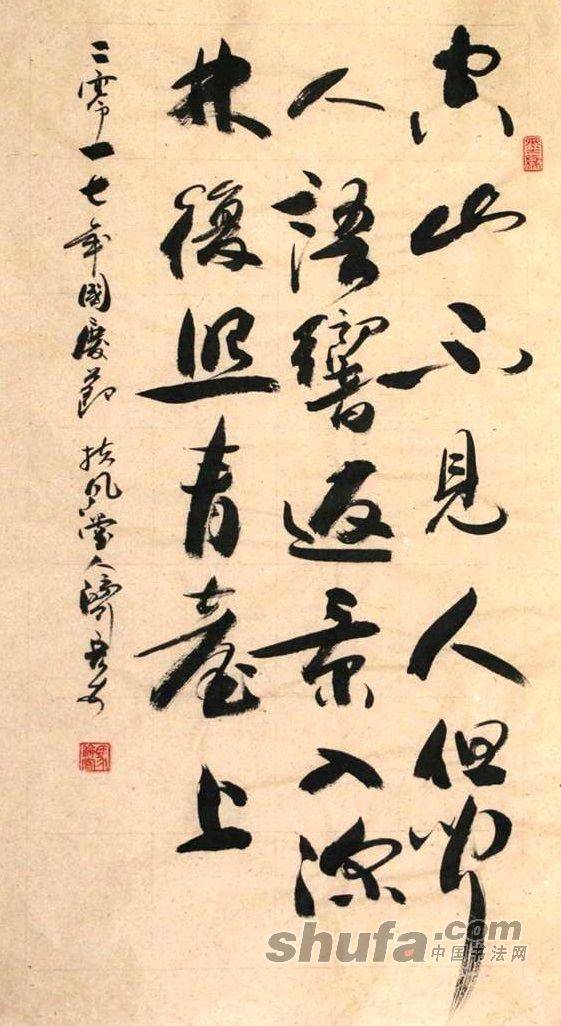 空山不見人但聞
人語響返景入深
林復照青臺上
二零一七年國慶節 扶風堂人
shufa.com
中国书法网